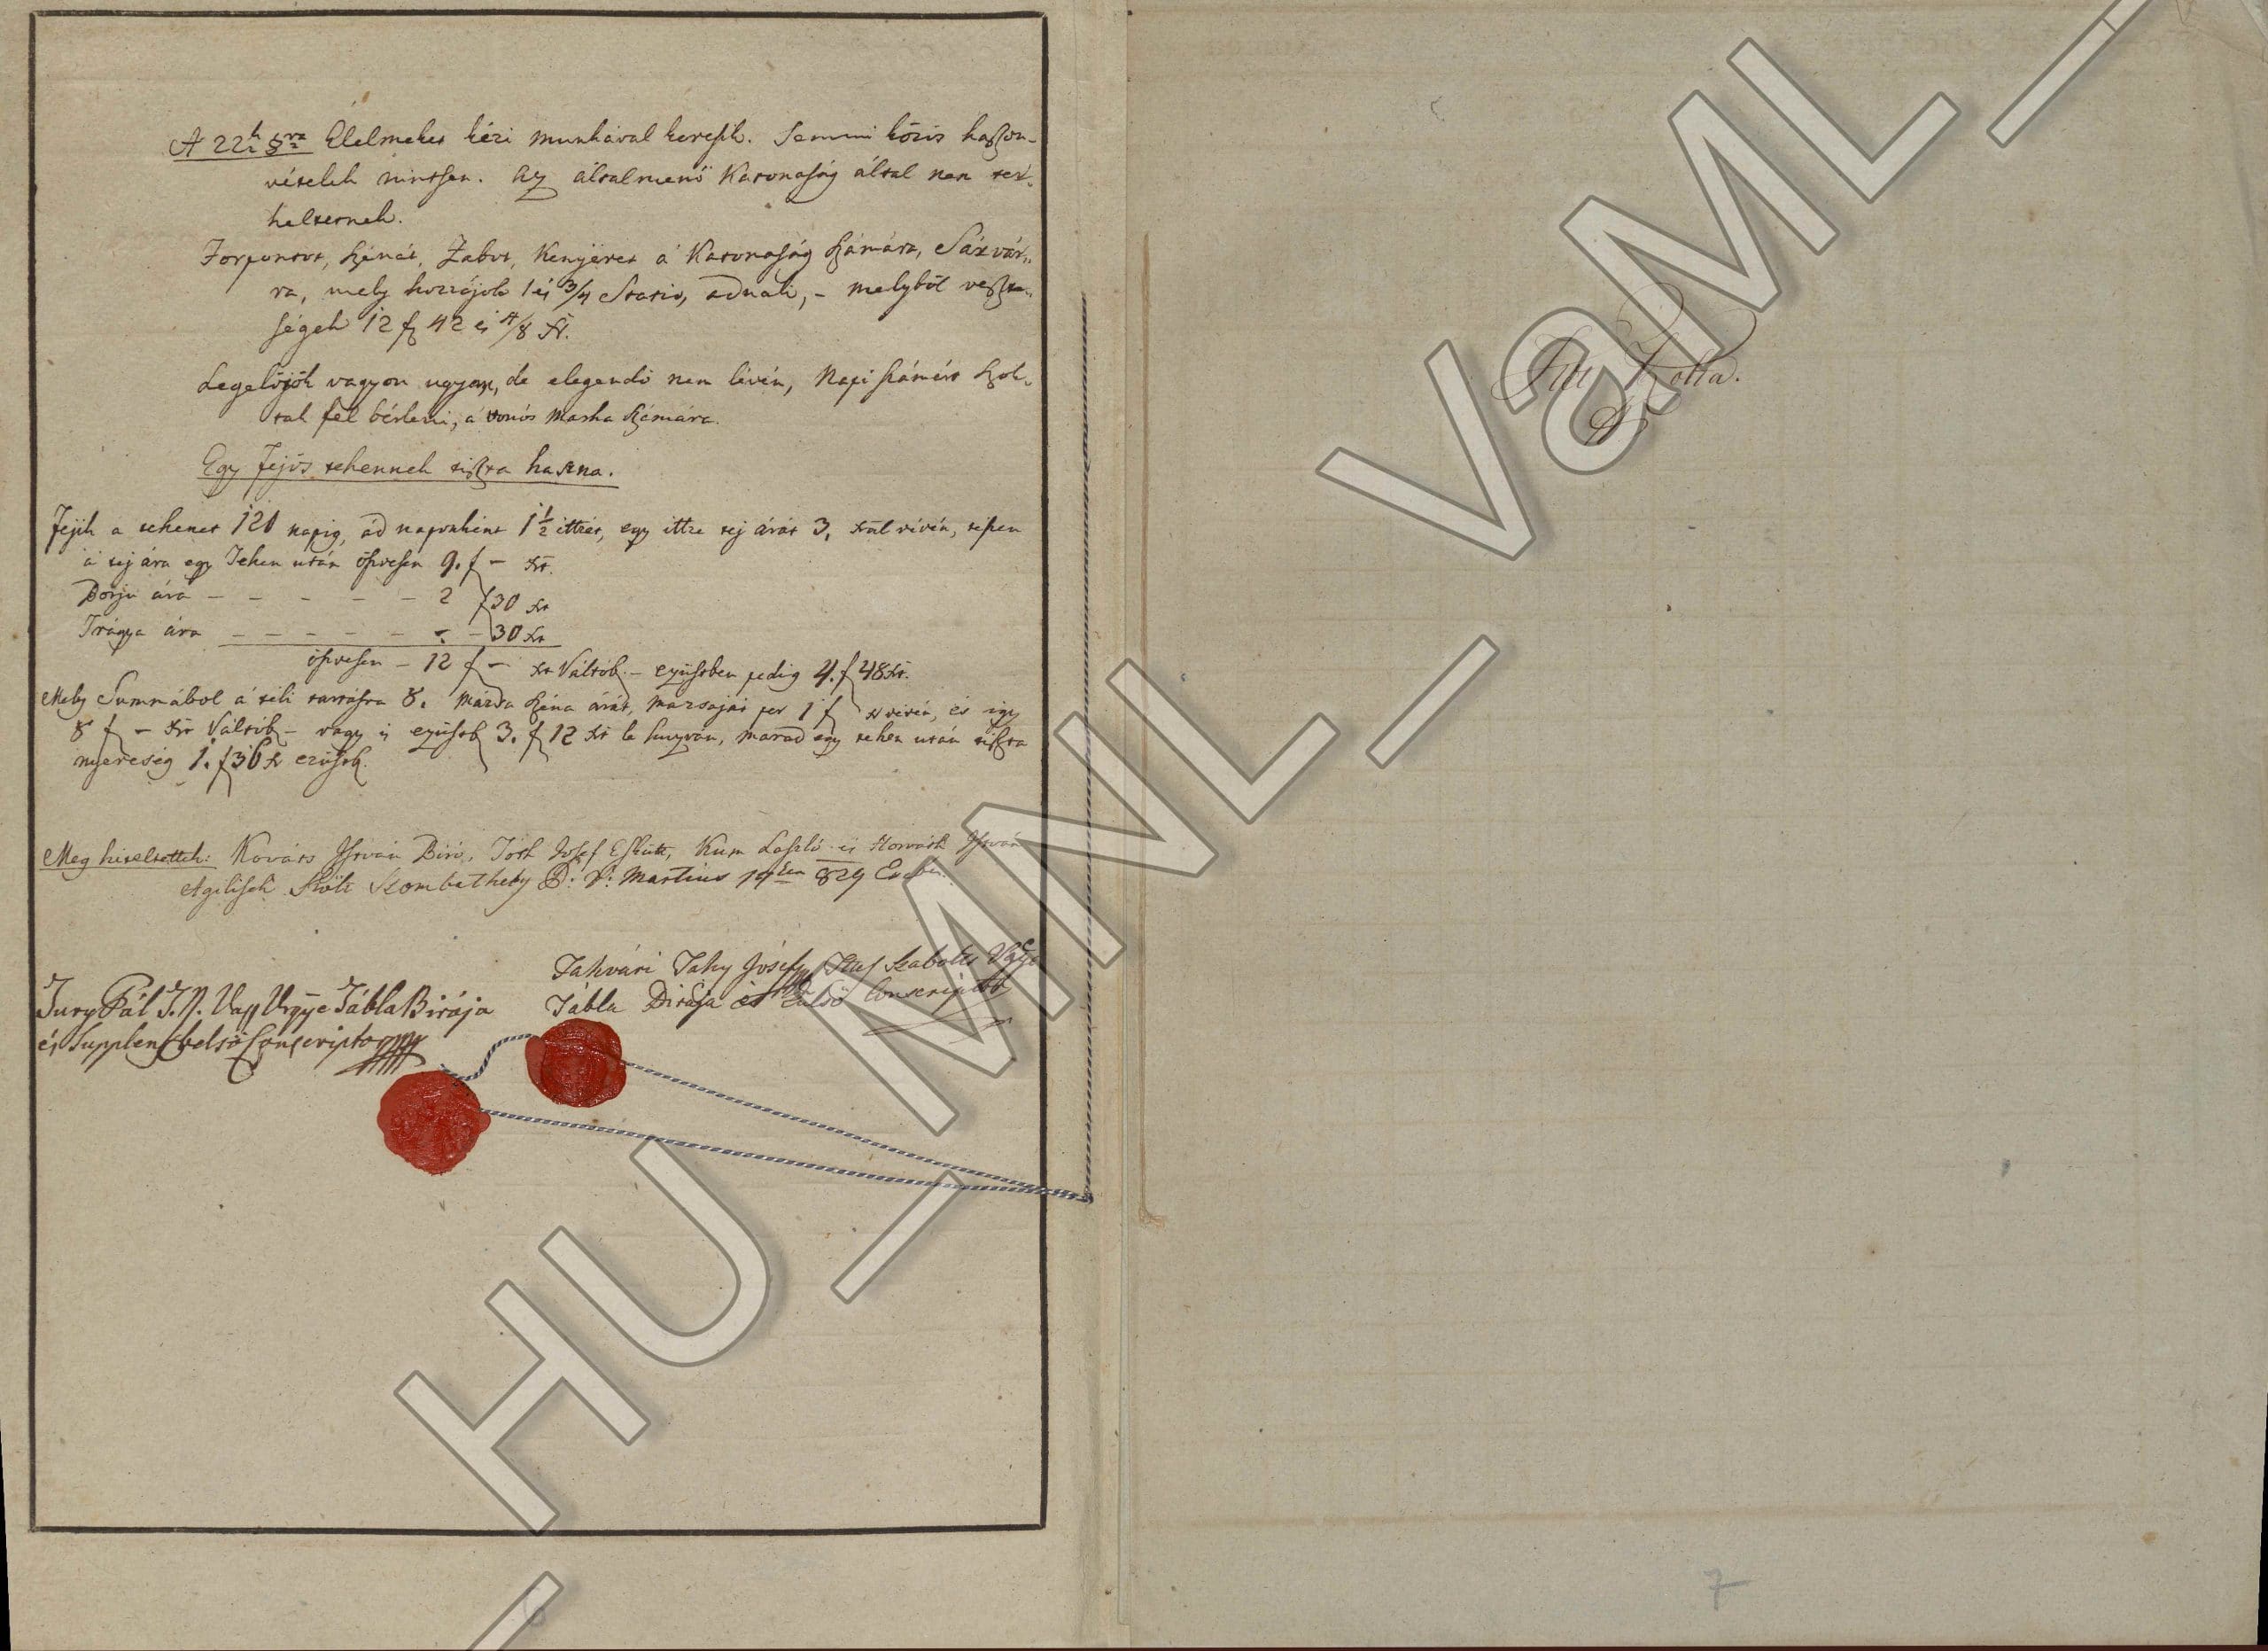 A 22k §ra Élelmeket kézi munkával keresik. Semmi közös haszon-
vételek nintsen. Az általmenő Katonaság által nem ter-
heltetnek.
Forspontot, Szénát, Zabot, Kenyeret á Katonaság számára, Sárvár-
ra, mely hozzájok 1 és 3/4 Statio, adnak, - melyből veszte-
ségek 12 f 42 és 4/8 Xr.
Legelőjök vagyon ugyan, de elegendő nem lévén, Napi számért szok-
tak fel bérleni, á vonós Marha számára.
Egy fejős tehennek tiszta haszna.
Fejik a tehenet 120 napig, ád naponként 1 1/2 ittzét, egy ittze tej árát 3. xral vévén, tészen
á tej ára egy Tehen után öszvesen 9. f - xr.
Borju ára - - - - - - 2 f 30 xr
Trágya ára - - - - - - - 30 xr
öszvesen - 12 f - xr Váltób. - ezüstben pedig 4. f 48 xr.
Mely Summábol á téli tartásra 8. mázsa széna árát, mázsáját per 1 f xr vévén, és igy
8 f - xr Váltób - vagy is ezüstb 3. f 12 xr le huzván, marad egy tehen után tiszta
nyereség 1. f 36 x ezüstb.
Meg hiteltettek: Kováts István Biró, Tóth Josef Eskütt, Kum László és Horváth István
Szombathely D: 19én 829 Eszben.
Jury Pál T. N. Vas Vrgye Tábla Birája
és Supplens belső Conscriptor mp
Tahvári Tahy Jósef Ttes Szabolts Vgye
Tábla Birája és Külső Conscriptor
Kis Kotta.
7
HU_MNL_VaML_